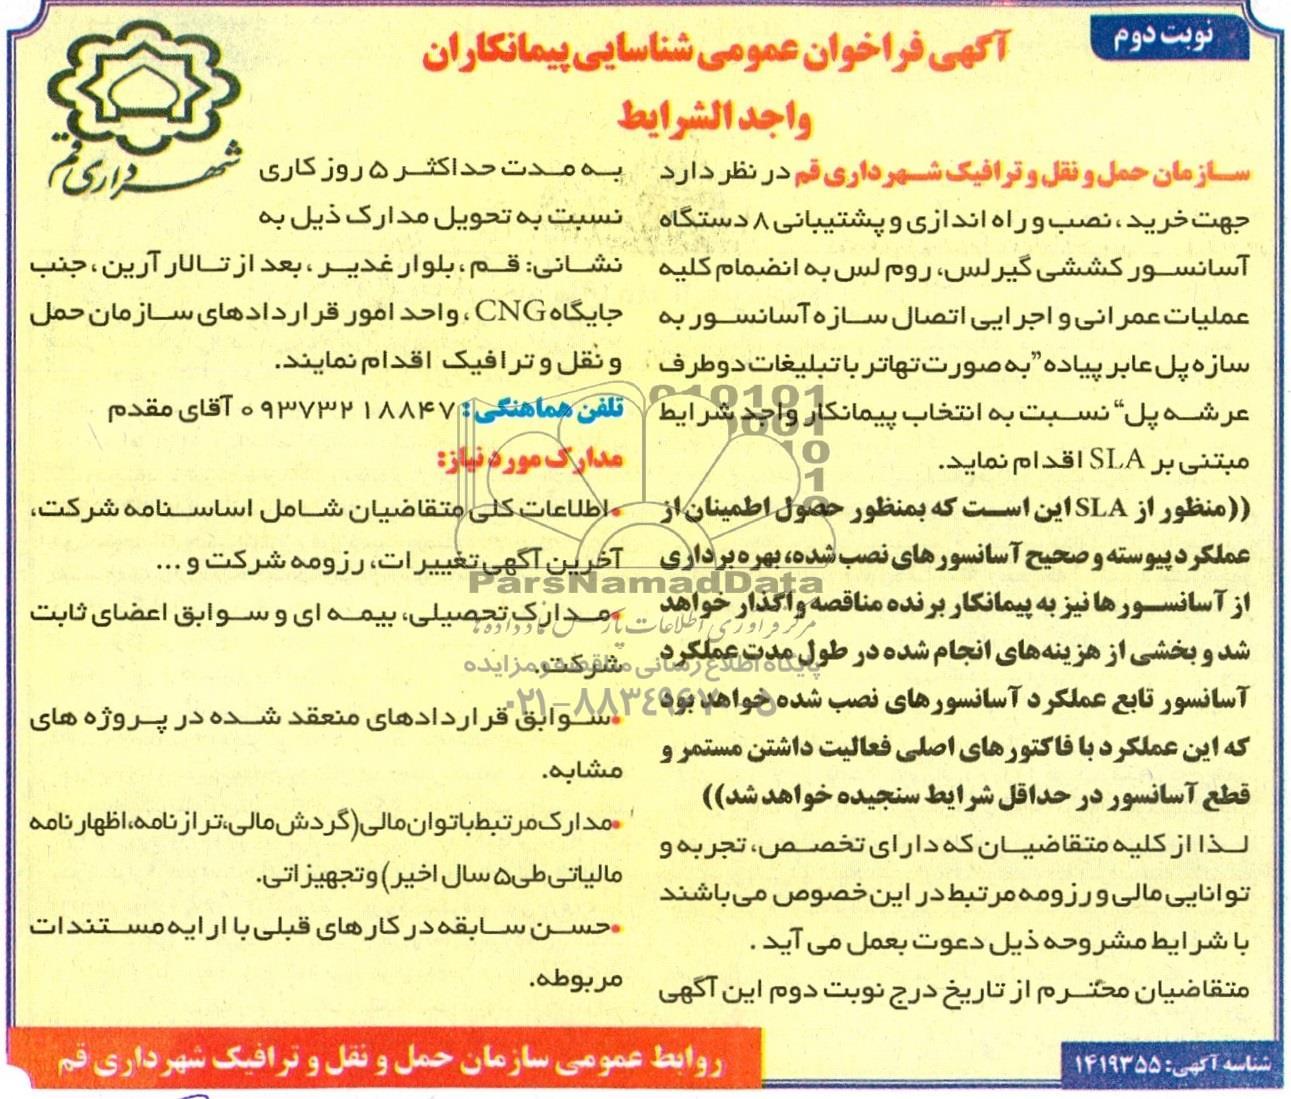 نوبت دوم
آگهی فراخوان عمومی شناسایی پیمانکاران
واجد الشرایط
شهرداری قم
سازمان حمل و نقل و ترافیک شهرداری قم در نظر دارد
جهت خرید، نصب و راه اندازی و پشتیبانی ۸ دستگاه
آسانسور کششی گیرلس، روم لس به انضمام کلیه
عملیات عمرانی و اجرایی اتصال سازه آسانسور به
سازه پل عابر پیاده "به صورت تهاتر با تبلیغات دوطرف
عرشه پل" نسبت به انتخاب پیمانکار واجد شرایط
مبتنی بر SLA اقدام نماید.
((منظور از SLA این است که بمنظور حصول اطمینان از
عملکرد پیوسته و صحیح آسانسورهای نصب شده، بهره برداری
از آسانسورها نیز به پیمانکار برنده مناقصه واگذار خواهد
شد و بخشی از هزینه‌های انجام شده در طول مدت عملکرد
آسانسور تابع عملکرد آسانسورهای نصب شده خواهد بود
که این عملکرد با فاکتورهای اصلی فعالیت داشتن مستمر و
قطع آسانسور در حداقل شرایط سنجیده خواهد شد))
لذا از کلیه متقاضیان که دارای تخصص، تجربه و
توانایی مالی و رزومه مرتبط در این خصوص می‌باشند
با شرایط مشروحه ذیل دعوت بعمل می آید .
متقاضیان محترم از تاریخ درج نوبت دوم این آگهی
به مدت حداکثر ۵ روز کاری
نسبت به تحویل مدارک ذیل به
نشانی: قم، بلوار غدیر، بعد از تالار آرین، جنب
جایگاه CNG، واحد امور قراردادهای سازمان حمل
و نقل و ترافیک اقدام نمایند.
تلفن هماهنگی: ۰۹۳۷۳۲۱۸۸۴۷ آقای مقدم
مدارک مورد نیاز:
•اطلاعات کلی متقاضیان شامل اساسنامه شرکت،
آخرین آگهی تغییرات، رزومه شرکت و ...
•مدارک تحصیلی، بیمه ای و سوابق اعضای ثابت
شرکت.
•سوابق قراردادهای منعقد شده در پروژه های
مشابه.
•مدارک مرتبط با توان مالی(گردش مالی،تراز نامه،اظهارنامه
مالیاتی طی ۵ سال اخیر) و تجهیزاتی.
•حسن سابقه در کارهای قبلی با ارایه مستندات
مربوطه.
ParsNamadData
مرکز فرآوری اطلاعات پارس نماد داده ها
پایگاه اطلاع رسانی مناقصه و مزایده
شناسه آگهی: ۱۴۱۹۳۵۵
روابط عمومی سازمان حمل و نقل و ترافیک شهرداری قم